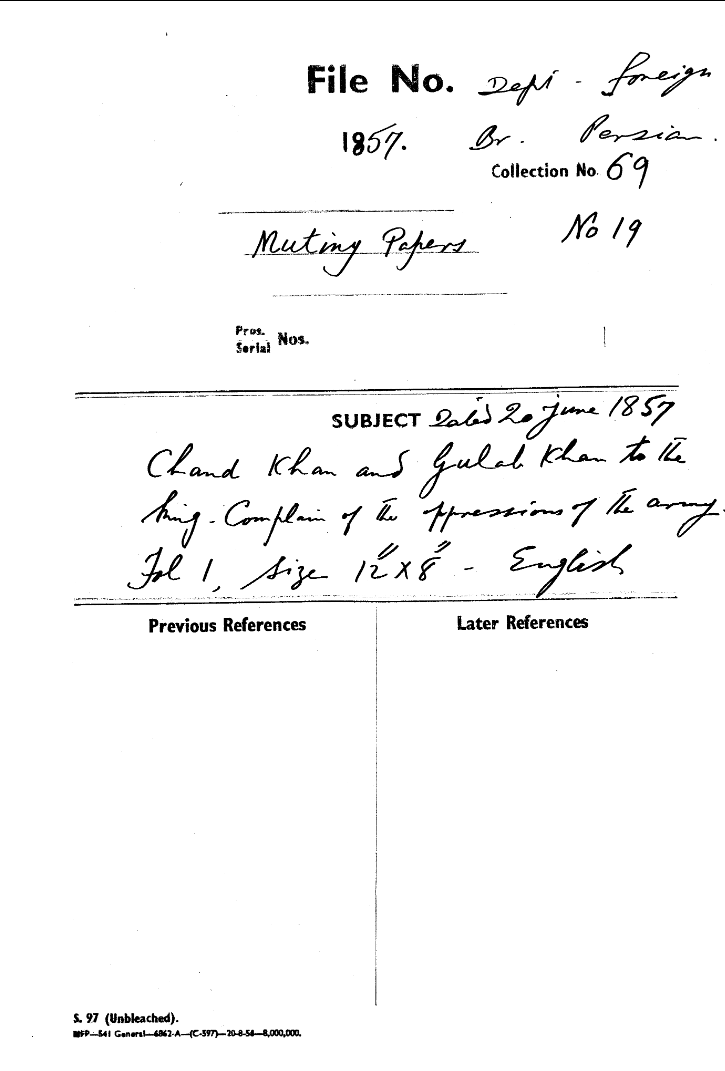 File No. Dept - Foreign
1857. Br. Persian.
Collection No. 69
Mutiny Papers No 19
Pros. Serial Nos.
SUBJECT Dated 20 June 1857
Chand Khan and Gulab Khan to the
King - Complain of the oppressions of the army.
Fol 1, Size 12" X 8" - English
Previous References Later References
S. 97 (Unbleached).
MFP—541 General—6862-A—(C-597)—20-8-56—8,000,000.